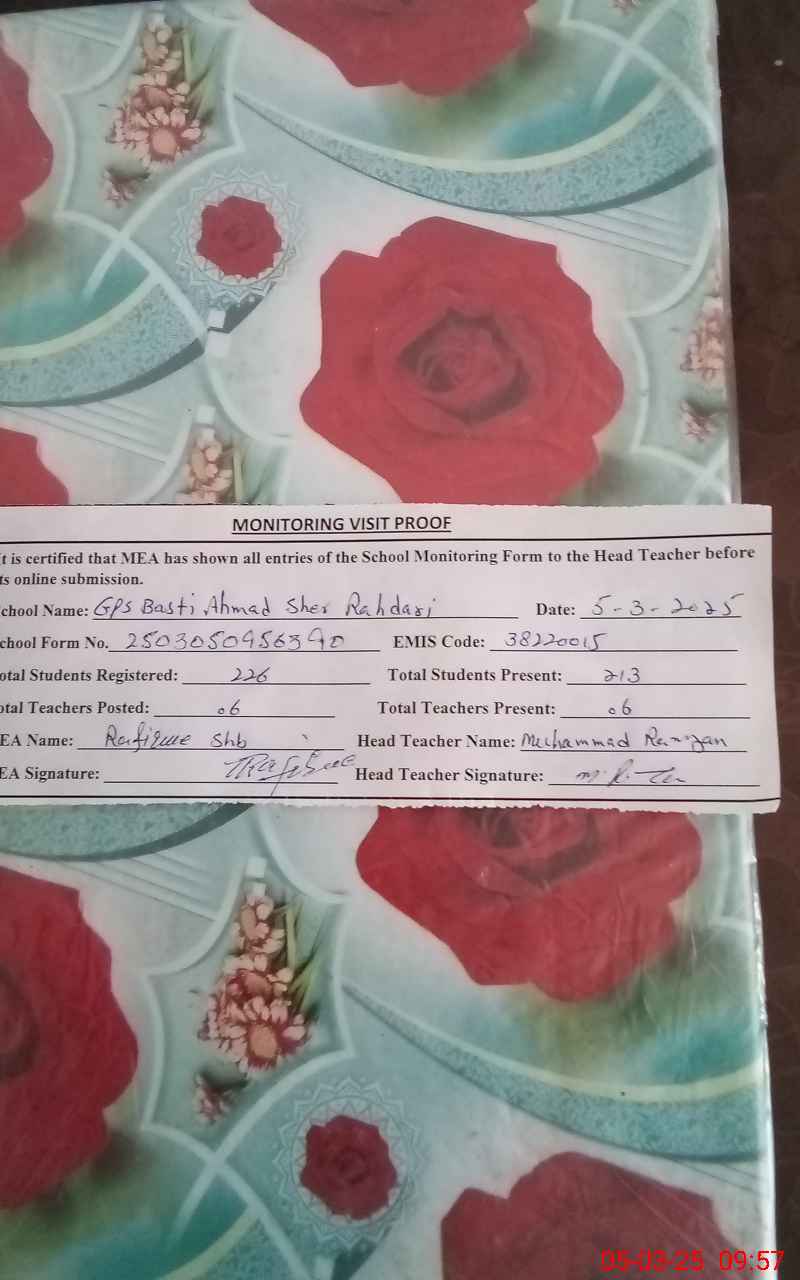 MONITORING VISIT PROOF
t is certified that MEA has shown all entries of the School Monitoring Form to the Head Teacher before
ts online submission.
chool Name: GPS Basti Ahmad Sher Rahdari Date: 5-3-2025
chool Form No. 2503050956390 EMIS Code: 38220015
otal Students Registered: 226 Total Students Present: 213
otal Teachers Posted: 06 Total Teachers Present: 06
EA Name: Rafique Shb Head Teacher Name: Muhammad Ramzan
EA Signature: Head Teacher Signature:
05-03-25 09:57